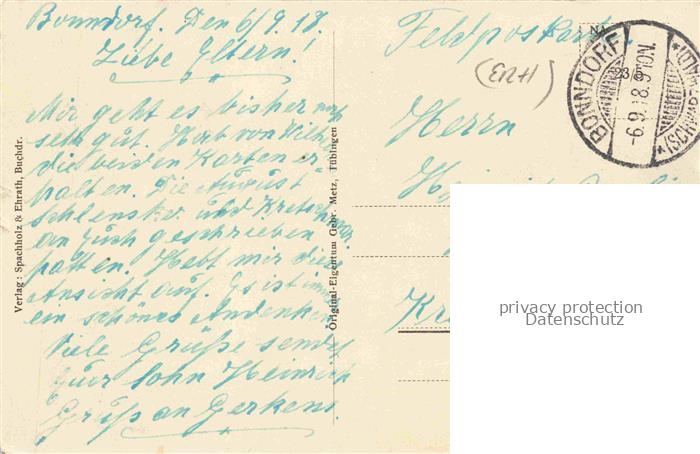 Bonndorf. Den 6/9.18.
Liebe Eltern!
Mir geht es bisher noch
sehr gut. Hab von Wilh.
die beiden Karten er-
halten. Die August
und
an Euch geschrieben
hatten. Hebt mir diese
Ansicht auf. Es ist im
ein schönes Andenken.
Viele Grüße sendet
Euer Sohn Heinrich
Gruß an Gerkens.
Verlag: Spachholz & Ehrath, Buchdr.
Original-Eigentum Gebr. Metz, Tübingen
Feldpostkarte.
Herrn
BONNDORF
-6.9.18.9-10N.
(SCHW
privacy protection
Datenschutz